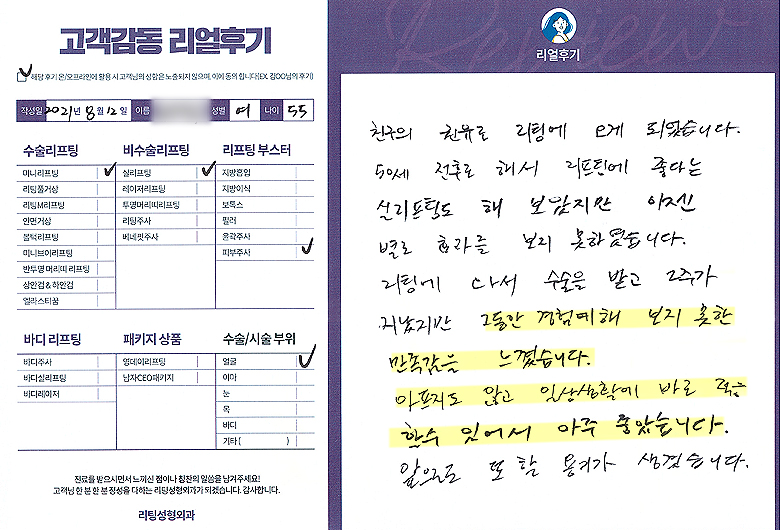 고객감동 리얼후기
해당 후기 온/오프라인에 활용 시 고객님의 성함은 노출되지 않으며, 이에 동의 합니다(EX. 김OO님의 후기)
작성일 2021년 8월 12일 이름 성별 여 나이 55
수술리프팅
미니리프팅
리팅풀거상
리팅M리프팅
안면거상
울턱리프팅
미니브이리프팅
반투명 머리띠 리프팅
상안검 & 하안검
엘라스티꿈
비수술리프팅
실리프팅
레이저리프팅
투명머리띠리프팅
리팅주사
베네핏주사
리프팅 부스터
지방흡입
지방이식
보톡스
필러
윤곽주사
피부주사
바디 리프팅
바디주사
바디실리프팅
바디레이저
패키지 상품
영데이리프팅
남자CEO패키지
수술/시술 부위
얼굴
이마
눈
목
바디
기타 ( )
진료를 받으시면서 느끼신 점이나 칭찬의 말씀을 남겨주세요!
고객님 한 분 한 분 정성을 다하는 리팅성형외과가 되겠습니다. 감사합니다.
리팅성형외과
Review
리얼후기
친구의 권유로 리팅에 오게 되었습니다.
50세 전후로 해서 리프팅에 좋다는
실리프팅도 해 보았지만 이젠
별로 효과를 보지 못하였습니다.
리팅에 와서 수술을 받고 2주가
지났지만 그동안 경험해 보지 못한
만족감을 느꼈습니다.
아프지도 않고 일상생활에 바로 적응
할수 있어서 아주 좋았습니다.
앞으로 또 할 용기가 생겼습니다.